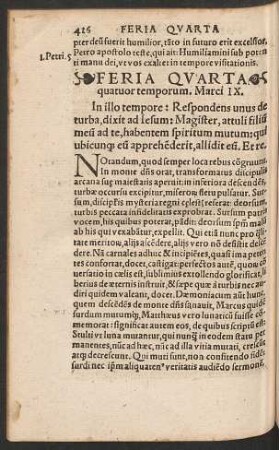 416 FERIA QVARTA
pter deũ fuerit humilior, tãto in futuro erit excelsior,
1. Petri. 5
Petro apostolo teste, qui ait: Humiliamini sub poten
ti manu dei, vt vos exaltet in tempore visitationis.
FERIA QVARTA
quatuor temporum. Marci IX.
In illo tempore: Respondens vnus de
turba, dixit ad Iesum: Magister, attuli filiũ
meũ ad te, habentem spiritum mutum: qui
vbicunq; eũ apprehẽderit, allidit eũ. Et re.
NOtandum, quod semper loca rebus cõgruunt.
In monte dñs orat, transformatur discipulis
arcana suę maiestatis aperit: in inferiora descẽdẽs,
turbæ occursu excipitur, miserorũ fletu pulsatur. Sur-
sum, discipulis mysteria regni cęlestis reserat: deorsum,
turbis peccata infidelitatis exprobrat. Sursum patris
vocem, his quibus poterat, pãdit: deorsum spm̃ malũ
ab his qui vexabãtur, expellit. Qui etiã nunc pro q̃li-
tate meritorũ, alijs ascẽdere, alijs vero nõ desistit descẽ
dere. Nã carnales adhuc & incipiẽtes, quasi ima petens
confortat, docet, castigat: perfectos autẽ, quorũ cõ
uersatio in cælis est, sublimius extollendo glorificat, li
berius de æternis instruit, & sæpe quæ à turbis nec au-
diri quidem valeant, docet. Dæmoniacum aũt hunc,
quem descẽdẽs de monte dñs sanauit, Marcus quidẽ
surdum mutumq;, Matthæus vero lunaticũ fuisse cõ-
memorat: significat autem eos, de quibus scriptũ est:
Stultus vt luna mutatur, qui nunq̃ in eodem statu per
manentes, nũc ad hæc, nũc ad illa vitia mutati, crescũt
atq; decrescunt. Qui muti sunt, no non confitendo fidẽ:
surdi nec ipm̃ aliquatenus veritatis audiẽdo sermonẽ.